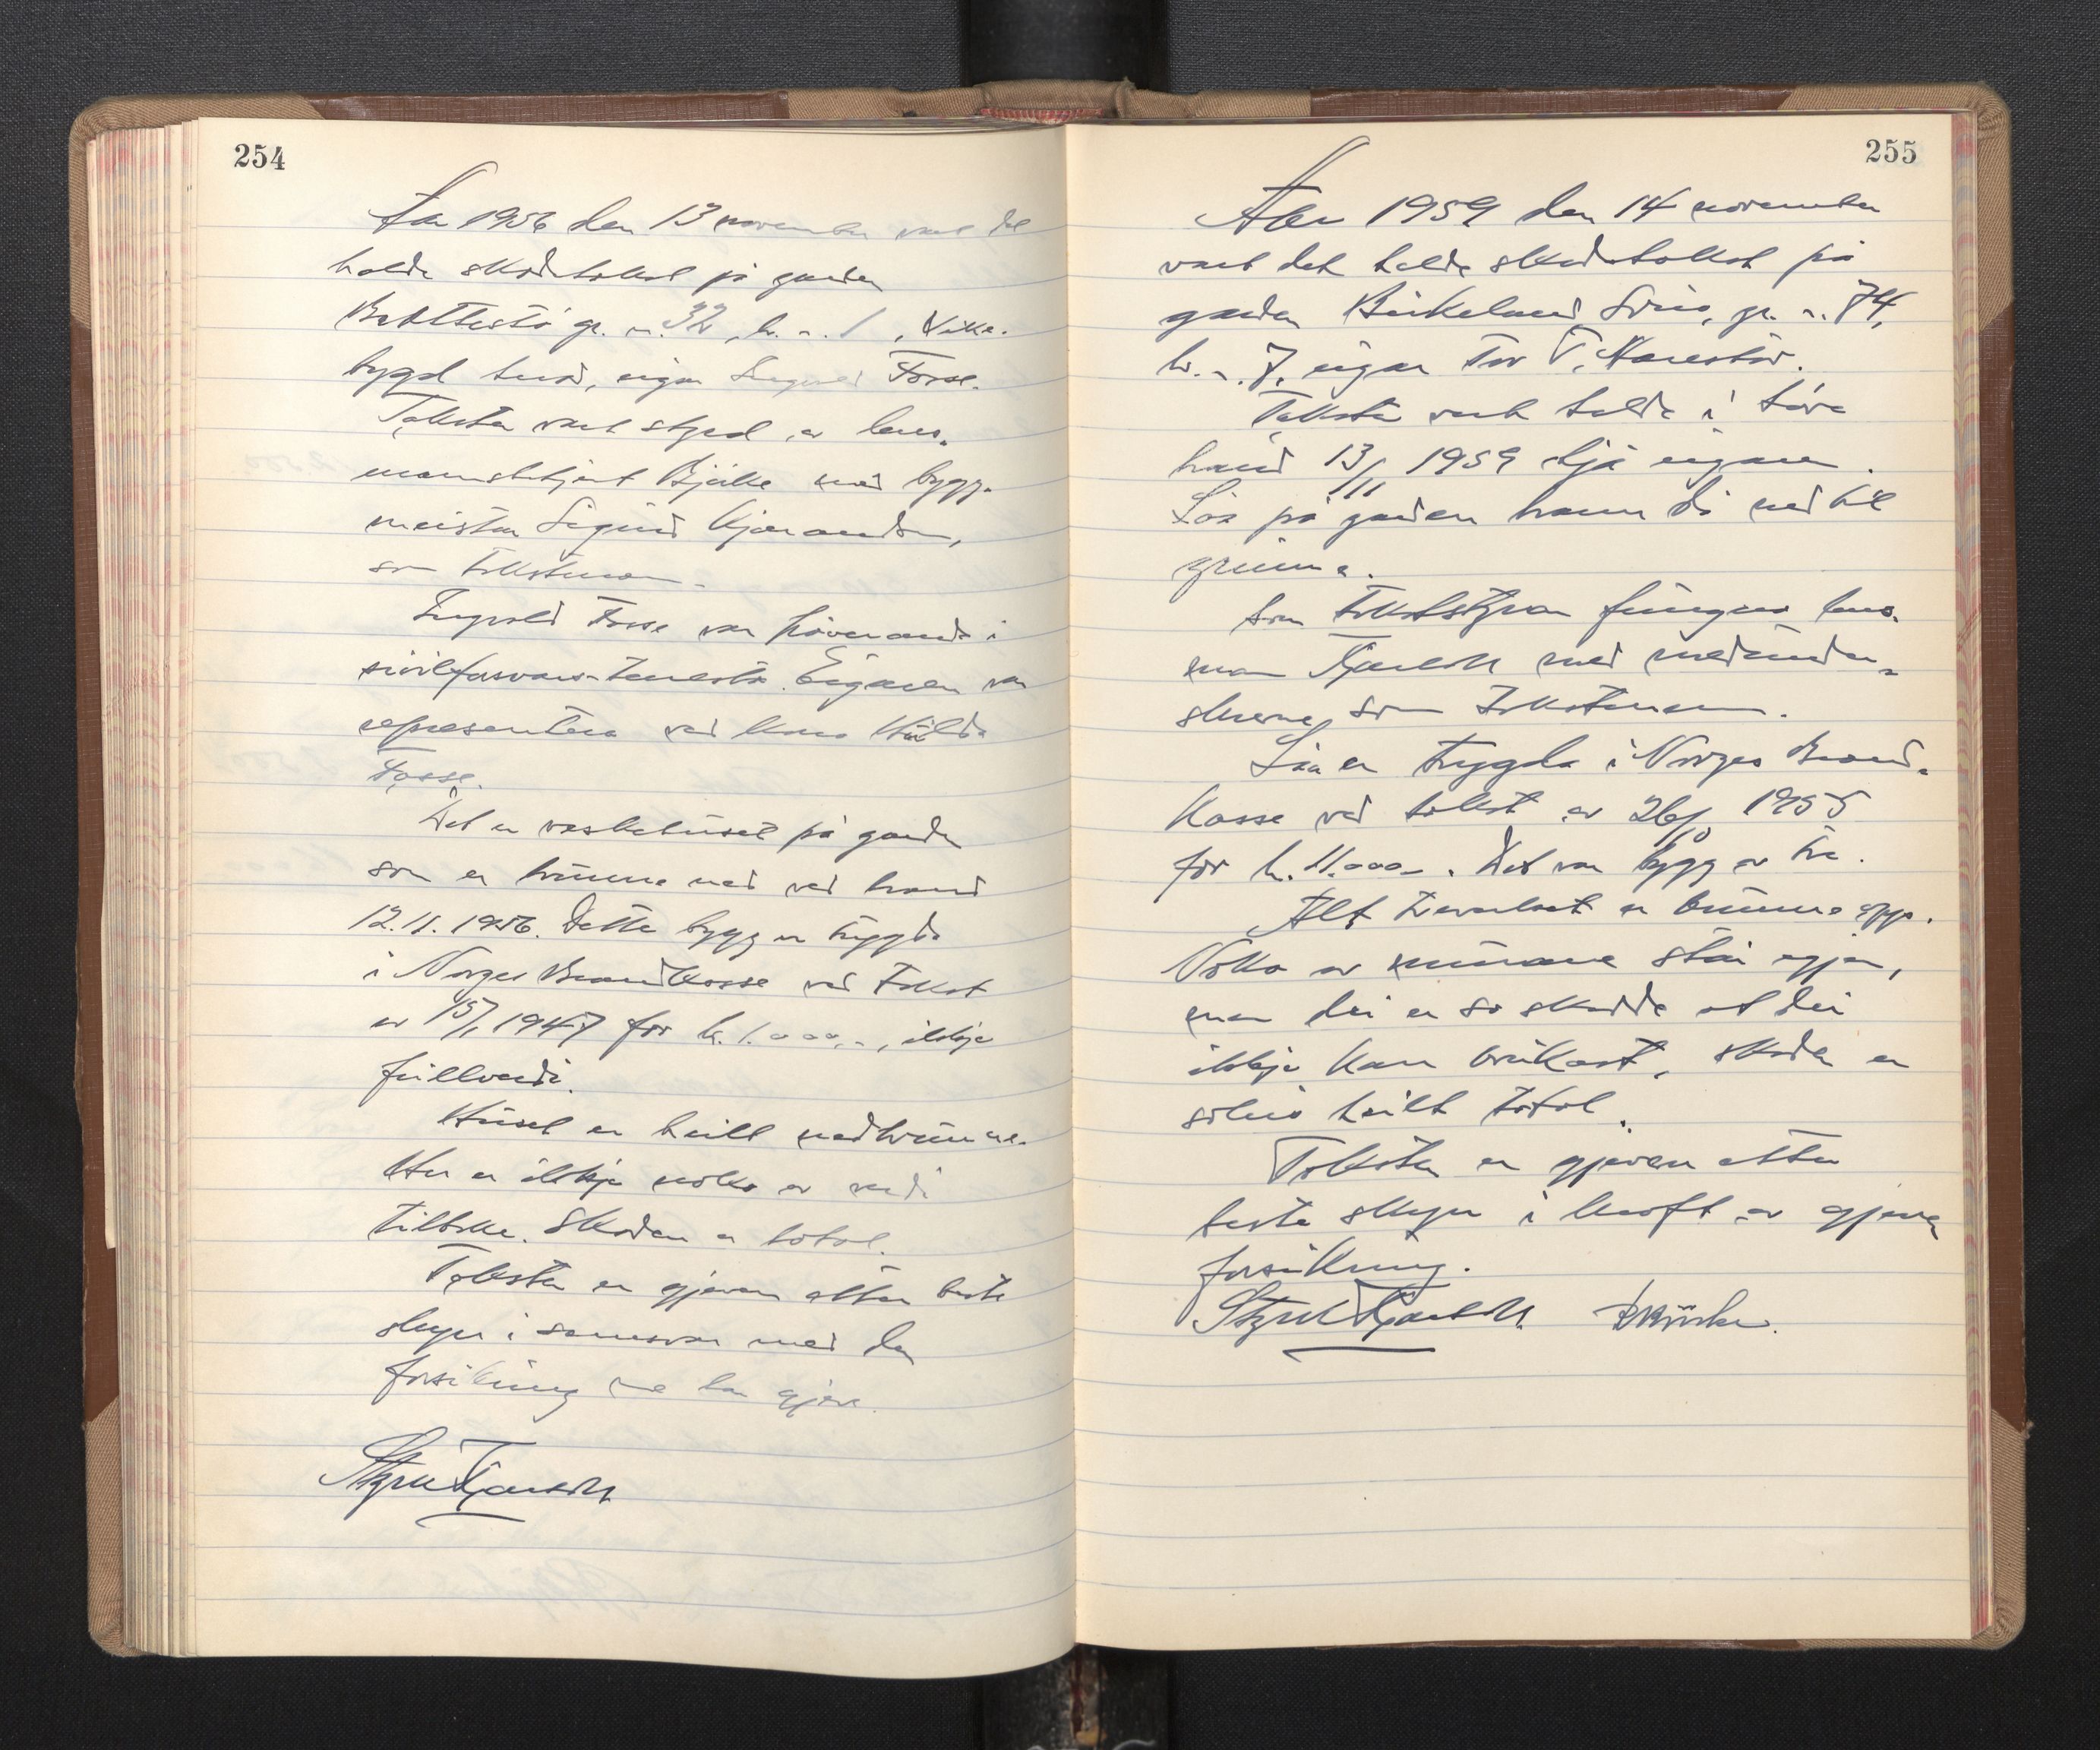 254
År 1956 den 13 november vart det
halde skadetakst på garden
gr. n. 32, br. n. 1, Vike-
bygd herad, eigar Ingvald Fosse.
Taksten vart styrd av lens-
mannsbetjent Bjelke med bygg-
meister Sigurd
som takstmann.
Ingvald Fosse var fråverande i
sivilforsvars-teneste. Eigaren var
representera ved kona Hilda
Fosse.
Det er vaskehuset på garden
som er brunne ned ved brand
12.11.1956. Dette bygg er trygda
i Norges Brandkasse ved takst
av 15/1 1947 for kr. 1.000,-, ikkje
fullverdi.
Huset er heilt nedbrunne.
Her er ikkje noko av verdi
tilbake. Skaden er total.
Taksten er gjeven etter beste
skyn i samsvar med den
forsikring me har gjeve.
255
Året 1959 den 14 november
vart det halde skadetakst på
garden Birkeland Søre, gr. n. 74,
br. n. 7, eigar Tor T.
Taksten vart halde i høve
brand 13/11 1959 hjå eigaren.
Løa på garden brann då ned til
grunnen.
Som takststyrar fungera lens-
mann med medunder-
skrevne som takstmann.
Løa er trygda i Norges Brand-
kasse ved takst av 26/10 1955
for kr. 11.000,-. Det var bygg av tre.
Alt treverket er brunne opp.
Noko av murane står igjen,
men dei er so skadde at dei
ikkje kan brukast. Skaden er
såleis heilt total.
Taksten er gjeven etter
beste skyn i kraft av gjeven
forsikring.